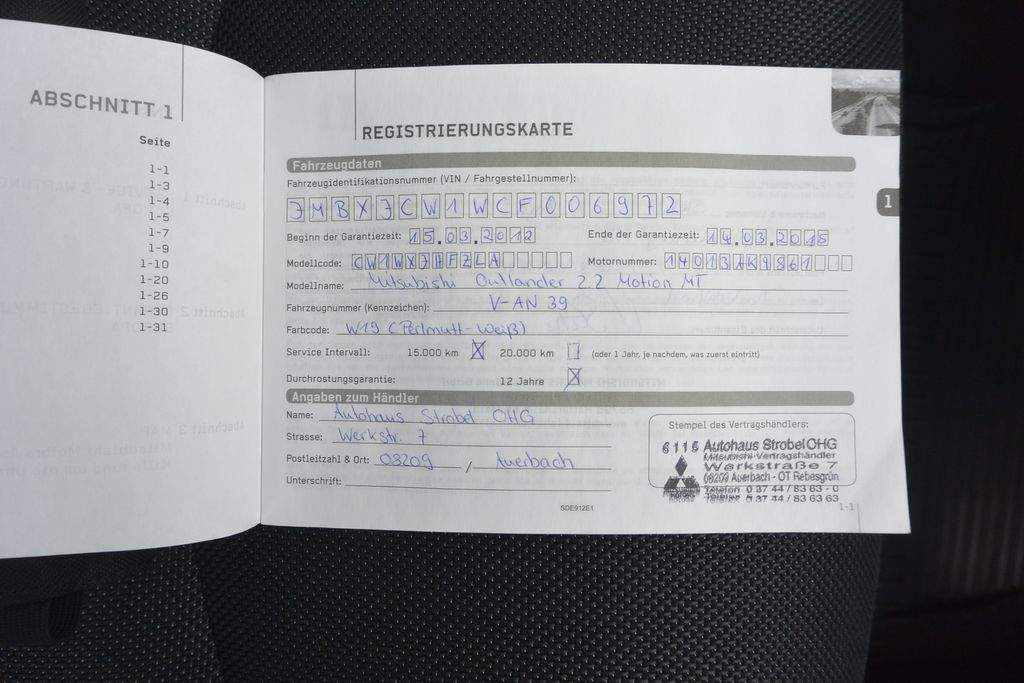 ABSCHNITT 1
Seite
1-1
1-3
1-4
1-5
1-7
1-9
1-10
1-20
1-26
1-30
1-31
REGISTRIERUNGSKARTE
Fahrzeugdaten
Fahrzeugidentifikationsnummer (VIN / Fahrgestellnummer):
JMBXJCW1WCF006972
Beginn der Garantiezeit: 15.03.2012 Ende der Garantiezeit: 14.03.2015
Modellcode: CW1WXJHFZLA Motornummer: 14013AK9861
Modellname: Mitsubishi Outlander 2.2 Motion MT
Fahrzeugnummer (Kennzeichen): V-AN 39
Farbcode: W19 (Perlmutt-Weiß)
Service Intervall: 15.000 km X 20.000 km (oder 1 Jahr, je nachdem, was zuerst eintritt)
Durchrostungsgarantie: 12 Jahre X
Angaben zum Händler
Name: Autohaus Strobel OHG
Strasse: Werkstr. 7
Postleitzahl & Ort: 08209 / Auerbach
Unterschrift:
Stempel des Vertragshändlers:
6115 Autohaus Strobel OHG
Mitsubishi-Vertragshändler
Werkstraße 7
08209 Auerbach - OT Rebesgrün
Telefon 0 37 44 / 83 63 - 0
Telefax 0 37 44 / 83 63 63
SDE912E1
1-1
1